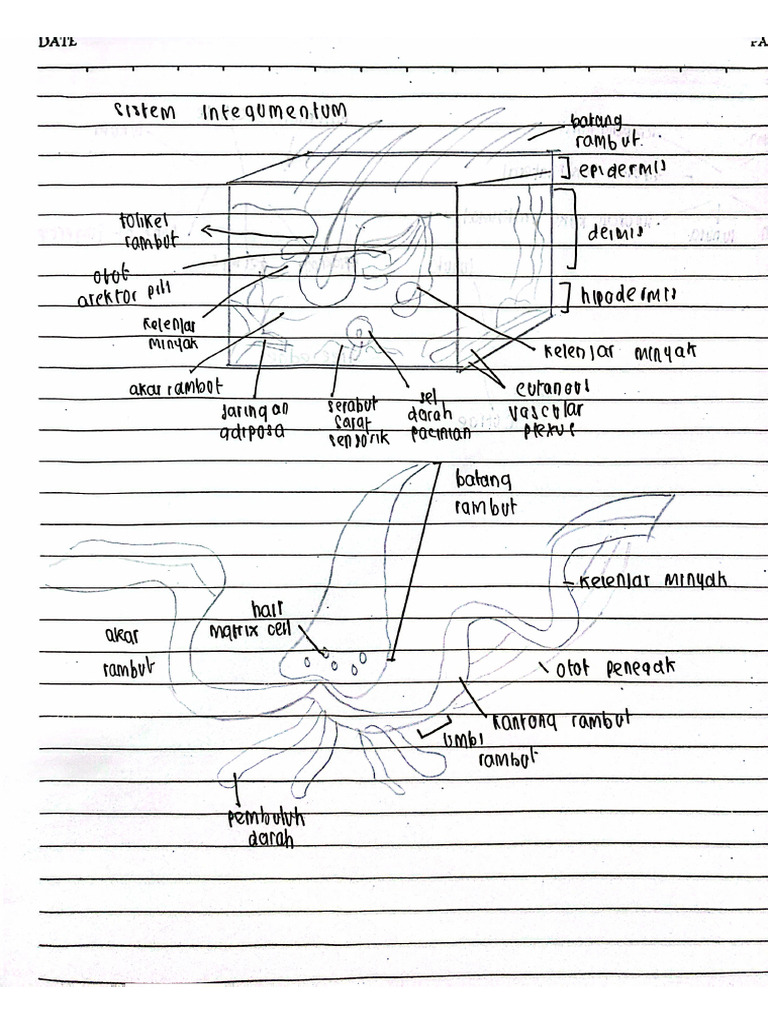 DATE
PA
Sistem Integumentum
batang
rambut.
epidermis
folikel
rambut
dermis
otot
arektor pili
hipodermis
kelenjar
minyak
kelenjar minyak
akar rambut
Jaringan
adiposa
serabut
saraf
sensorik
sel
darah
pacinian
cutanous
vascular
plexus
batang
rambut
kelenjar minyak
hair
matrix cell
akar
rambut
otot penegak
kantong rambut
umbi
rambut
pembuluh
darah